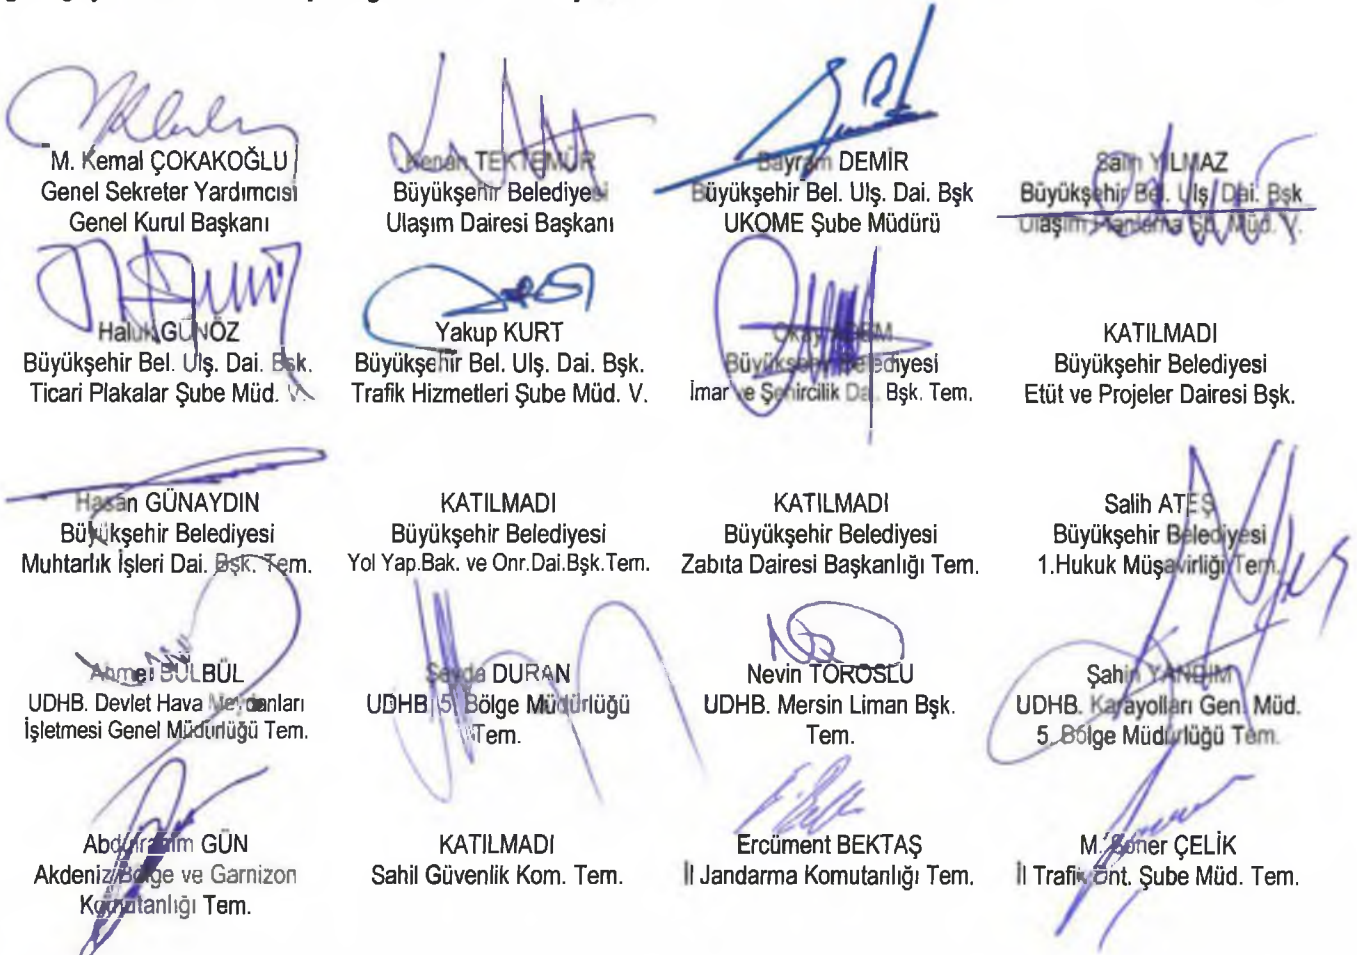 M. Kemal ÇOKAKOĞLU
Genel Sekreter Yardımcısı
Genel Kurul Başkanı
Kenan TEKTEMÜR
Büyükşehir Belediyesi
Ulaşım Dairesi Başkanı
Bayram DEMİR
Büyükşehir Bel. Ulş. Dai. Bşk
UKOME Şube Müdürü
Salih YILMAZ
Büyükşehir Bel. Ulş. Dai. Bşk
Ulaşım Planlama Şb. Müd. V.
Haluk GÜNÖZ
Büyükşehir Bel. Ulş. Dai. Bşk.
Ticari Plakalar Şube Müd. V.
Yakup KURT
Büyükşehir Bel. Ulş. Dai. Bşk.
Trafik Hizmetleri Şube Müd. V.
Büyükşehir Belediyesi
İmar ve Şehircilik Dai. Bşk. Tem.
KATILMADI
Büyükşehir Belediyesi
Etüt ve Projeler Dairesi Bşk.
Hasan GÜNAYDIN
Büyükşehir Belediyesi
Muhtarlık İşleri Dai. Bşk. Tem.
KATILMADI
Büyükşehir Belediyesi
Yol Yap.Bak. ve Onr.Dai.Bşk.Tem.
KATILMADI
Büyükşehir Belediyesi
Zabıta Dairesi Başkanlığı Tem.
Salih ATEŞ
Büyükşehir Belediyesi
1.Hukuk Müşavirliği Tem.
Ahmet BÜLBÜL
UDHB. Devlet Hava Meydanları
İşletmesi Genel Müdürlüğü Tem.
DURAN
UDHB. 5. Bölge Müdürlüğü
Tem.
Nevin TOROSLU
UDHB. Mersin Liman Bşk.
Tem.
Şahin YANDIM
UDHB. Karayolları Gen. Müd.
5. Bölge Müdürlüğü Tem.
Abdurrahim GÜN
Akdeniz Bölge ve Garnizon
Komutanlığı Tem.
KATILMADI
Sahil Güvenlik Kom. Tem.
Ercüment BEKTAŞ
İl Jandarma Komutanlığı Tem.
M. Soner ÇELİK
İl Trafik Dnt. Şube Müd. Tem.